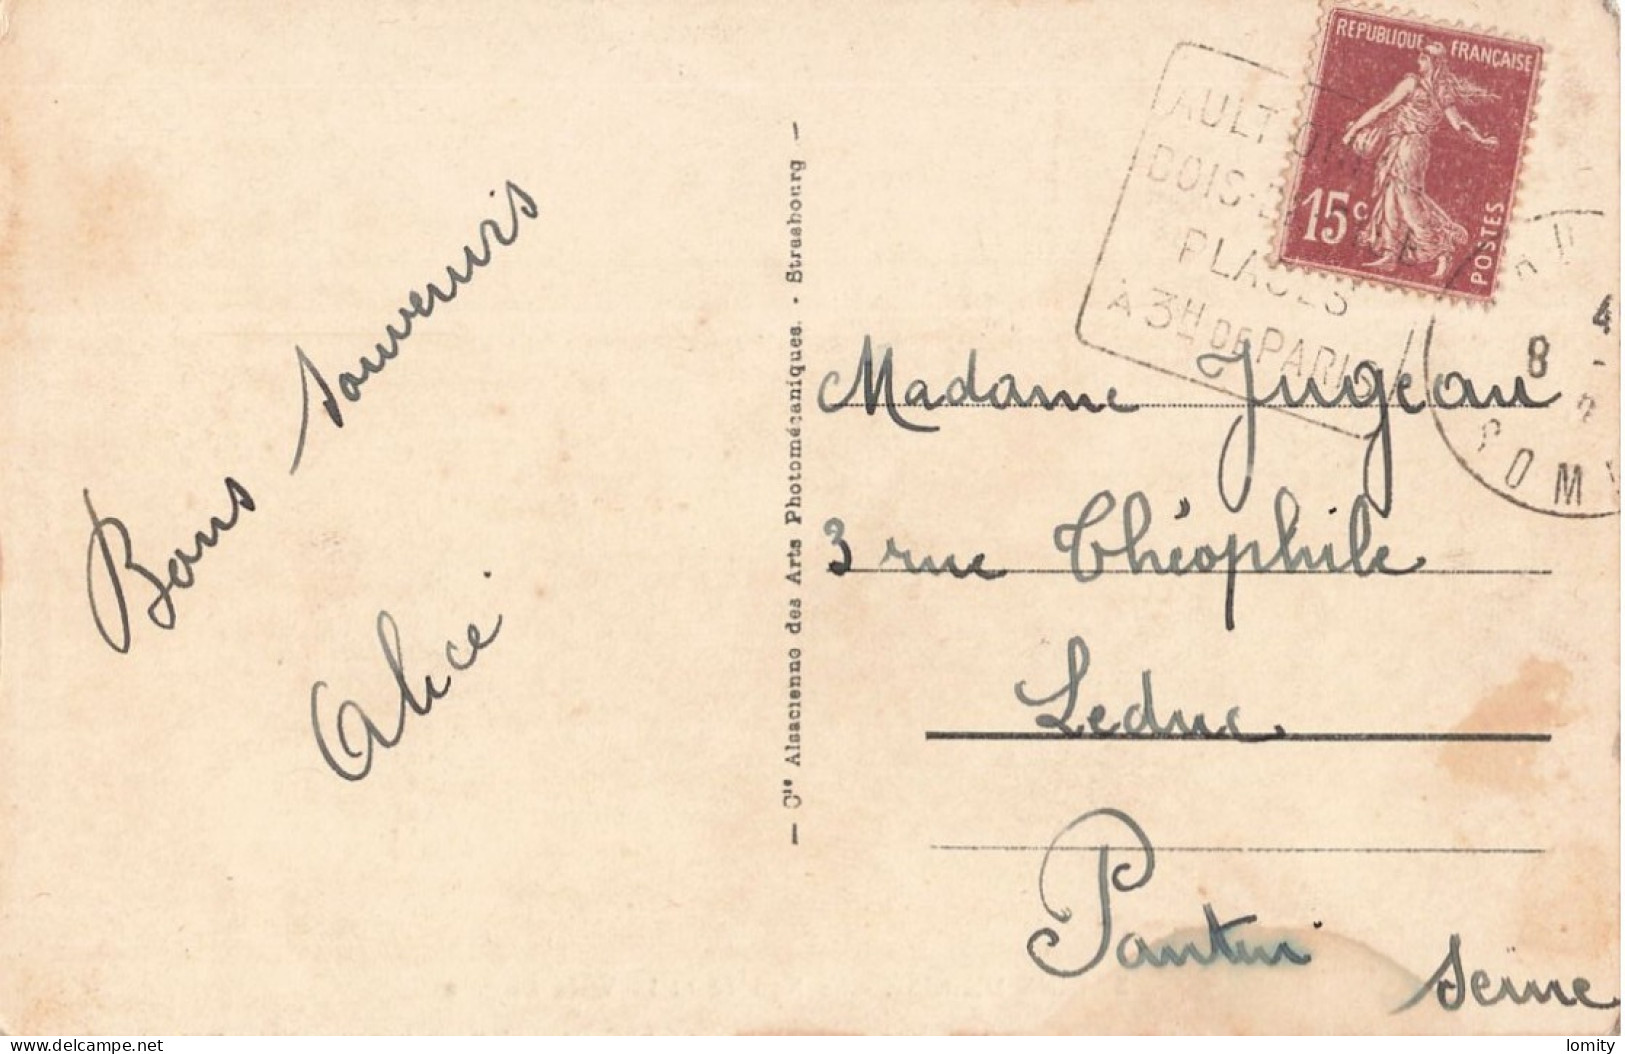 Bons souvenirs
Alice
— Cie Alsacienne des Arts Photomécaniques. - Strasbourg —
REPUBLIQUE FRANÇAISE
15c
POSTES
AULT
BOIS-
PLAGES
A 3H DE PARIS
4
8
Madame Jugeau
3 rue Théophile
Leduc
Pantin
Seine
www.delcampe.net
lomity